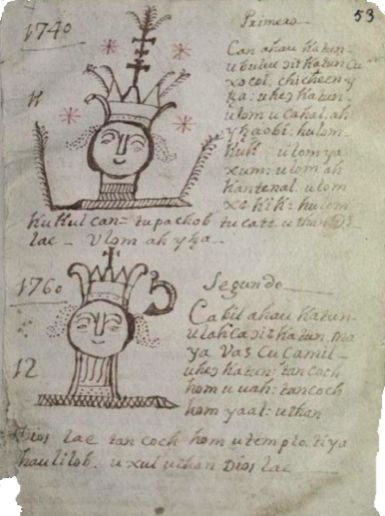 53
1740
Primero
Can ahau Katun
u buluc zit Katun Cu
xocol. chicheen y
tza: u hetz Katun.
ulom u cahal ah
ytzaobi. hulom.
Kuk: ulom ya
xum: ulom ah
Kantenal. ulom
xe Kik: hulom
11
Kukulcan= tu pachob tu caten u than Dios
lae. Ulom ah ytza.
1760
Segundo
Cabil ahau Katun
u lahca zit Katun. ma
ya Vas Cuzamil
u hetz Katun: tan coch
hom u uah: tan coch
hom yaal: u than
12
Dios lae tan coch hom u templo. ti ya
haulilob. u xul u than Dios lae